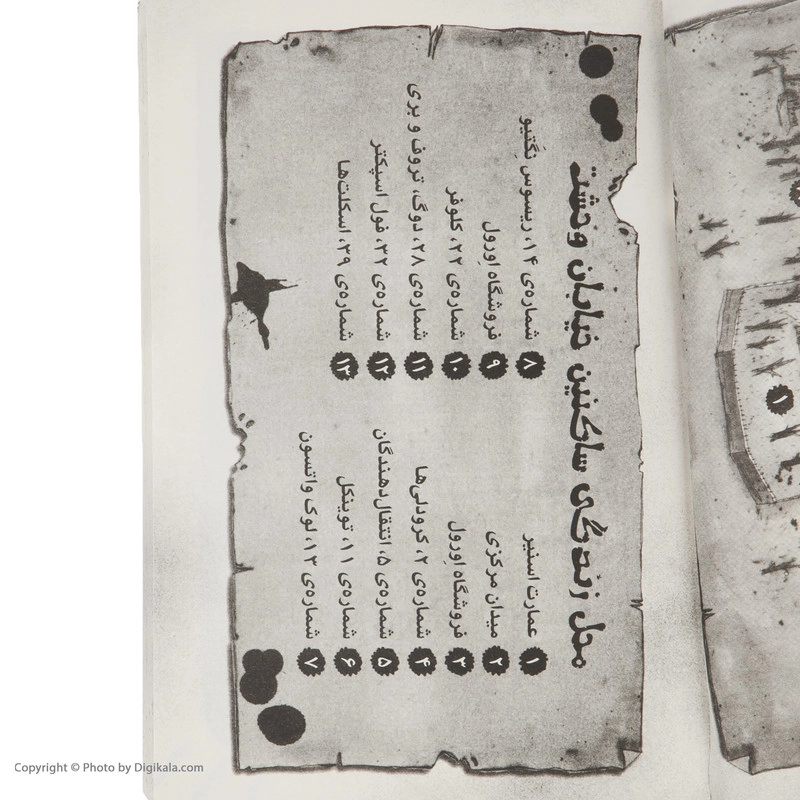 محل زندگی ساکنین خیابان وحشت
۱ عمارت اسنیر
۲ میدان مرکزی
۳ فروشگاه اورول
۴ شماره‌ی ۲، کرودلی‌ها
۵ شماره‌ی ۵، انتقال‌دهندگان
۶ شماره‌ی ۱۱، توینکل
۷ شماره‌ی ۱۳، لوک واتسون
۸ شماره‌ی ۱۴، ریسوس نِگتیو
۹ فروشگاه اورول
۱۰ شماره‌ی ۲۲، کلوفر
۱۱ شماره‌ی ۲۸، دوگ، تروف و بری
۱۲ شماره‌ی ۳۲، فول اسپکتر
۱۳ شماره‌ی ۳۹، اسکلت‌ها
۱
Copyright © Photo by Digikala.com